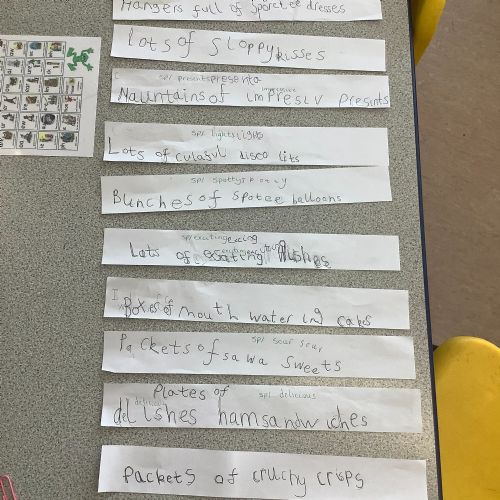 Hangers full of sparctee dresses
Lots of sloppy kisses
spl presents presents
impressive
Nauntains of impresiv presints
spl lights lights
Lots of culasul disco lits
spl spotty spotty
Bunches of spotee balloons
spl exciting
exciting
Lots of exsating
Boxes of mouth water ing cakes
spl sour sour
Packets of sawa sweets
Plates of spl delicious
delicious
delishes hamsandwiches
Packets of cruchy crisps